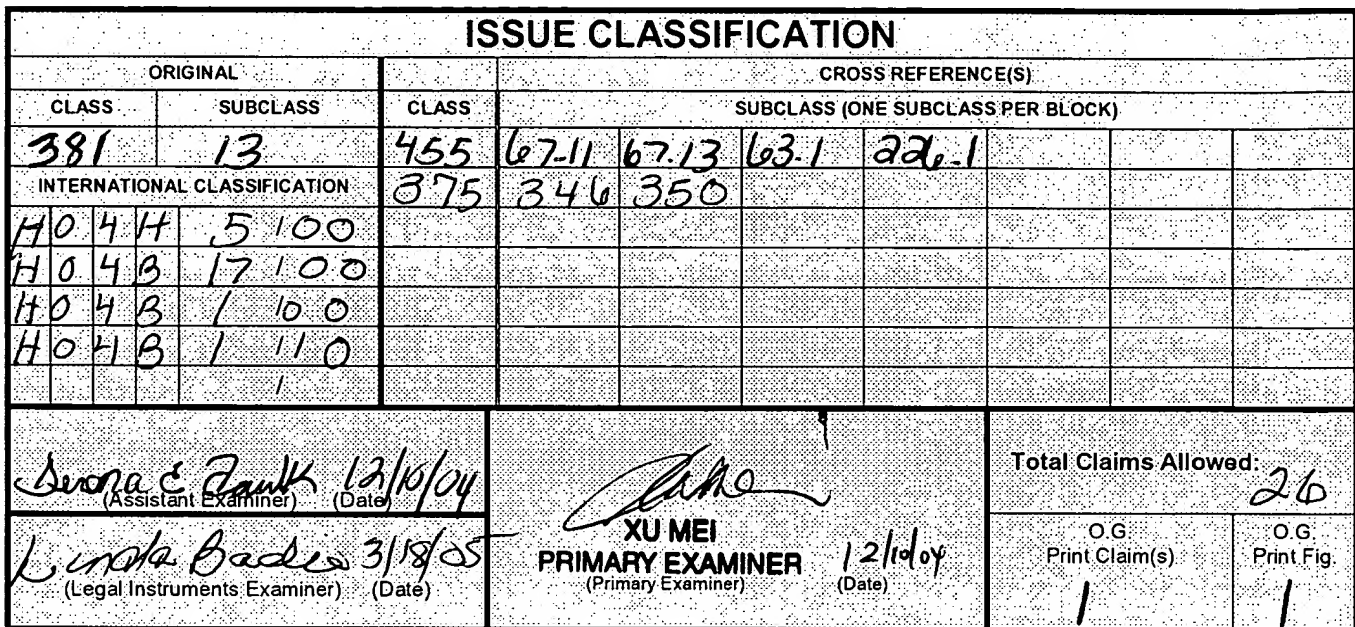 ISSUE CLASSIFICATION
ORIGINAL CROSS REFERENCE(S)
CLASS SUBCLASS CLASS SUBCLASS (ONE SUBCLASS PER BLOCK)
381 13 455 67.11 67.13 63.1 226.1
INTERNATIONAL CLASSIFICATION 375 346 350
H 0 4 H 5 / 00
H 0 4 B 17 / 00
H 0 4 B 1 / 00
H 0 4 B 1 / 10
/
12/10/04
(Assistant Examiner) (Date)
Linda 3/18/05
(Legal Instruments Examiner) (Date)
XU MEI
PRIMARY EXAMINER 12/10/04
(Primary Examiner) (Date)
Total Claims Allowed:
26
O.G. Print Claim(s)
1
O.G. Print Fig.
1